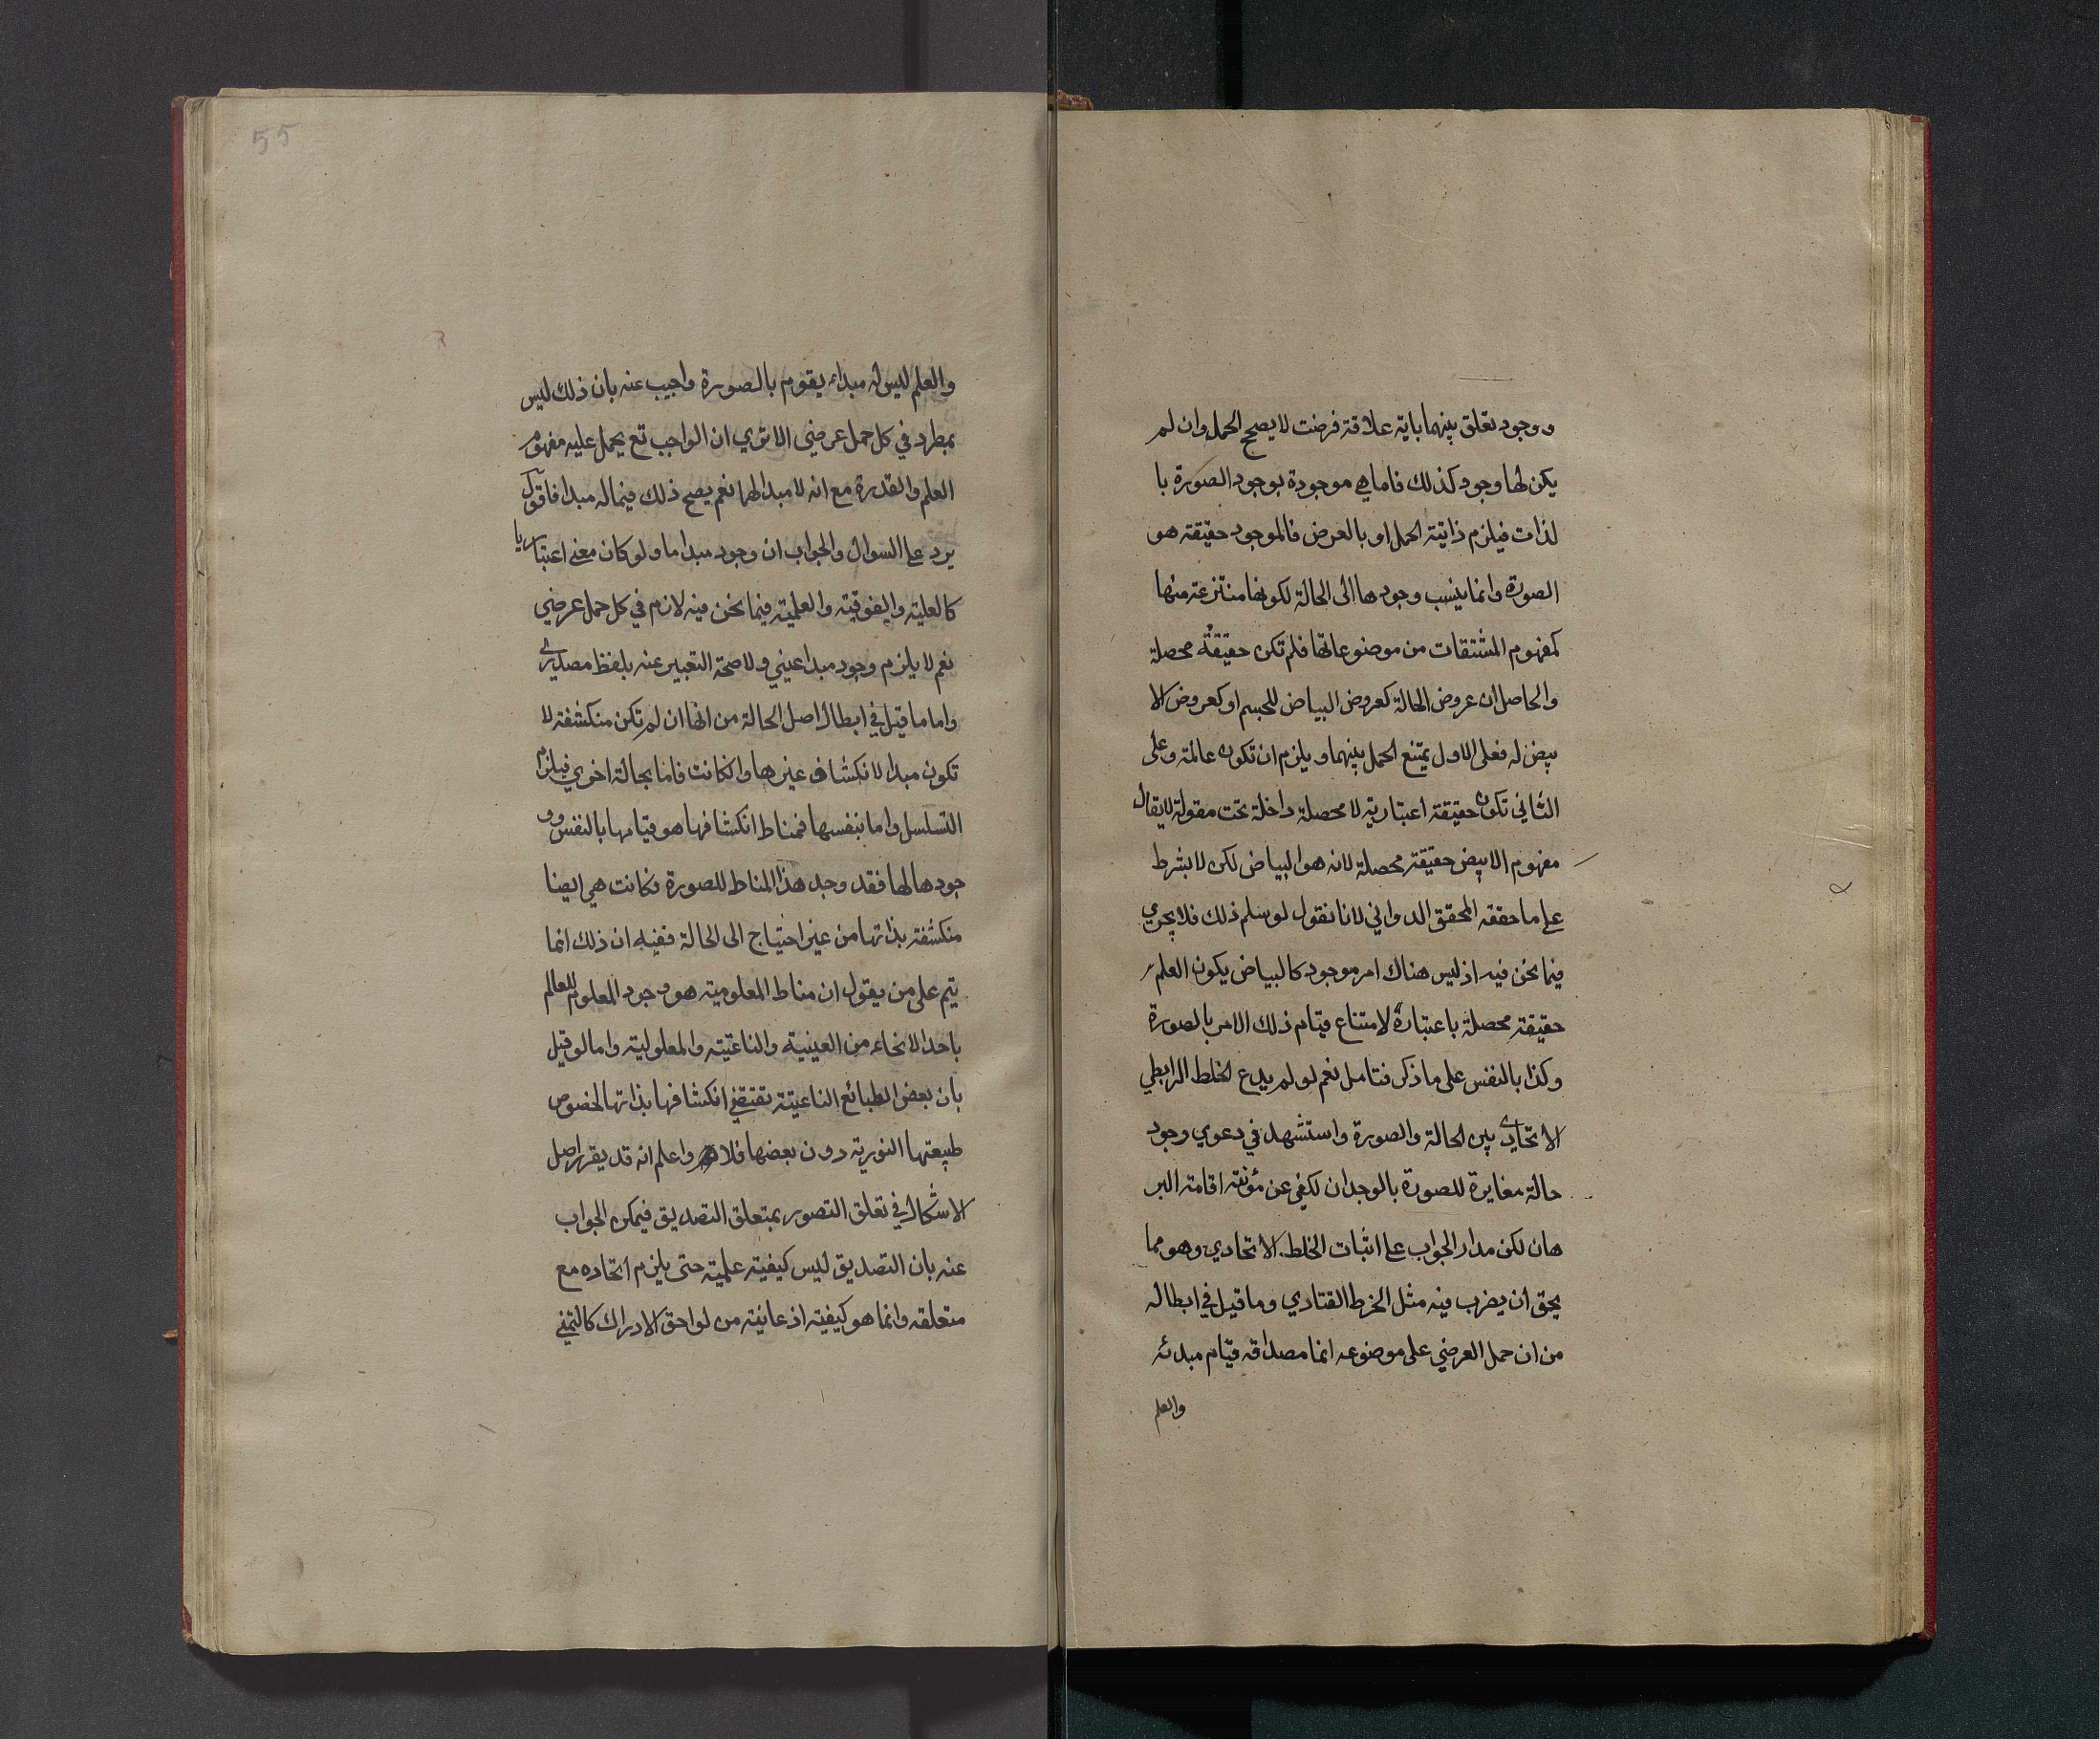 ووجود تعلق بينهما باية علاقة فرضت لا يصحح الحمل وان لم
يكن لها وجود كذلك فاما هي موجودة بوجود الصورة با
لذات فيلزم ذاتية الحمل او بالعرض فالموجود حقيقة هو
الصورة وانما ينسب وجودها الى الحالة لكونها منتزعة منها
كمفهوم المشتقات من موضوعاتها فلم تكن حقيقة محصلة
والحاصل ان عروض الحالة كعروض البياض للجسم او كعروض الا
بيض له فعلى الاول يمتنع الحمل بينهما ويلزم ان تكون عالمة وعلى
الثاني تكون حقيقة اعتبارية لا محصلة داخلة تحت مقولة لا يقال
مفهوم الابيض حقيقة محصلة لانه هو البياض لكن لا بشرط
على ما حققه المحقق الدواني لانا نقول لو سلم ذلك فلا يجري
فيما نحن فيه اذ ليس هناك امر موجود كالبياض يكون العلم
حقيقة محصلة باعتباره لامتناع قيام ذلك الامر بالصورة
وكذا بالنفس على ما ذكر فتامل نعم لو لم يدع الخلط الرابطي
الاتحادي بين الحالة والصورة واستشهد في دعوي وجود
حالة مغايرة للصورة بالوجدان لكفي عن مؤنة اقامة البر
هان لكن مدار الجواب على اثبات الخلط الاتحادي وهو مما
يحق ان يضرب فيه مثل الخرط القتادي وما قيل في ابطاله
من ان حمل العرضي على موضوعه انما مصداقه قيام مبدئه
والعلم
55
والعلم ليس له مبداء يقوم بالصورة واجيب عنه بان ذلك ليس
بمطرد في كل حمل عرضي الا تري ان الواجب تع يحمل عليه مفهوم
العلم والقدرة مع انه لا مبدا لهما نعم يصح ذلك فيما له مبدا فاقول
يرد على السوال والجواب ان وجود مبدا ما ولو كان معنى اعتباريا
كالعلية والفوقية والعلمية فيما نحن فيه لازم في كل حمل عرضي
نعم لا يلزم وجود مبدا عيني ولا صحة التعبير عنه بلفظ مصدري
واما ما قيل في ابطال اصل الحالة من انها ان لم تكن منكشفة لا
تكون مبدا لانكشاف غيرها وان كانت فاما بحالة اخري فيلزم
التسلسل واما بنفسها فمناط انكشافها هو قيامها بالنفس وو
جودها لها فقد وجد هذا المناط للصورة فكانت هي ايضا
منكشفة بذاتها من غير احتياج الى الحالة ففيه ان ذلك انما
يتم على من يقول ان مناط المعلومية هو وجود المعلوم للعالم
باحد الانحاء من العينية والناعتية والمعلولية واما لو قيل
بان بعض الطبائع الناعتية تقتضي انكشافها بذاتها لخصوص
طبيعتها النورية دون بعضها فلا واعلم انه قد يقرر اصل
الاشكال في تعلق التصور بمتعلق التصديق فيمكن الجواب
عنه بان التصديق ليس كيفية علمية حتى يلزم اتحاده مع
متعلقه وانما هو كيفية اذعانية من لواحق الادراك كالتمني